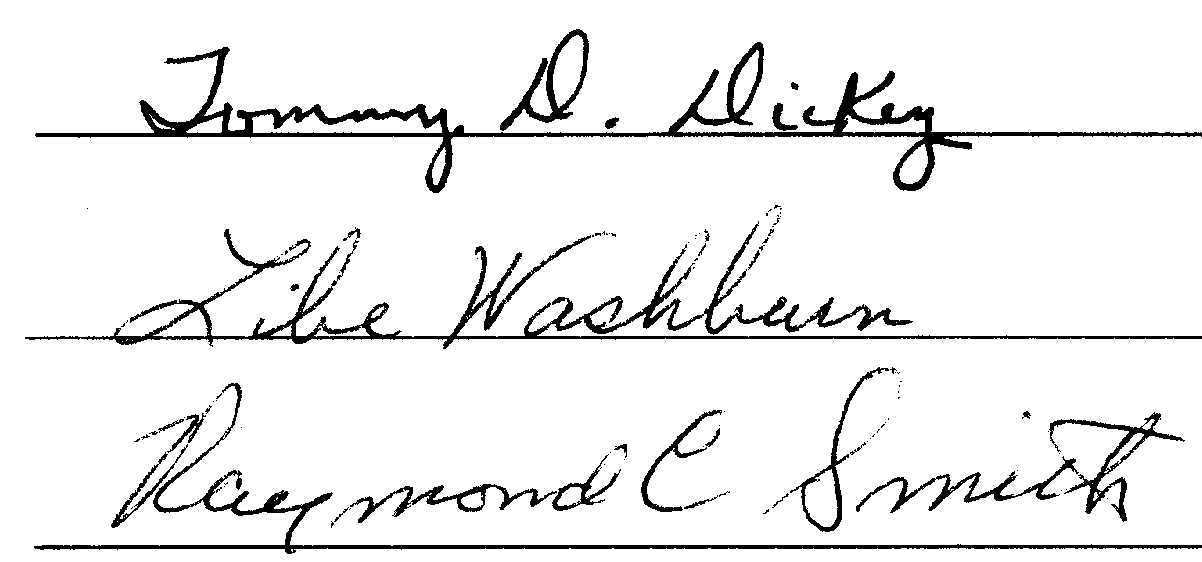 Tommy D. Dickey
Libe Washburn
Raymond C Smith